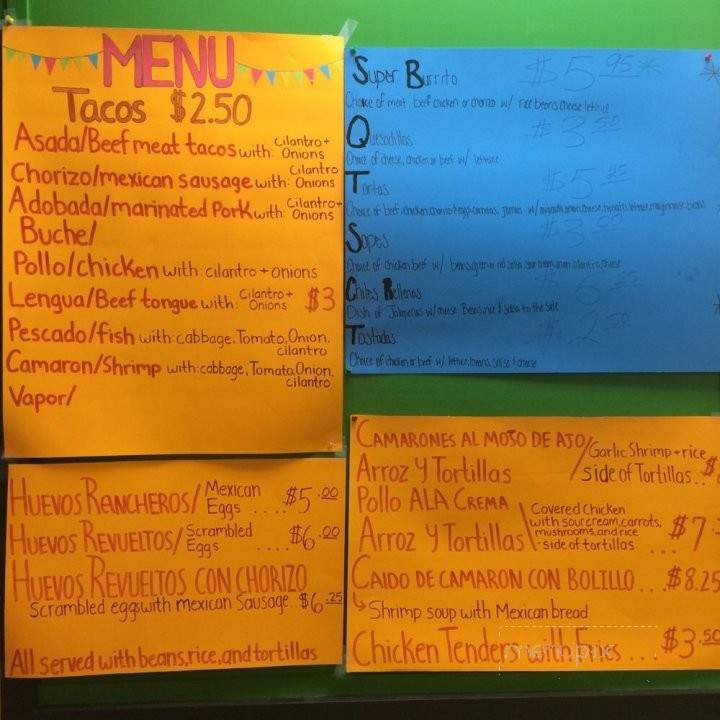 MENU
Tacos $2.50
Asada/Beef meat tacos with: Cilantro + Onions
Chorizo/mexican sausage with: Cilantro Onions
Adobada/marinated Pork with: Cilantro+ Onions
Buche/
Pollo/chicken with: cilantro + onions
Lengua/Beef tongue with: Cilantro + Onions $3
Pescado/fish with: cabbage, Tomato, Onion, cilantro
Camaron/Shrimp with: cabbage, Tomato, Onion, cilantro
Vapor/
Super Burrito $5.95*
Choice of meat beef chicken or chorizo w/ rice beans cheese lettuce
Quesadillas $3.50
Choice of cheese, chicken or beef w/ lettuce
Tortas $5
Choice of beef, chicken, chorizo + eggs, carnitas, jamon w/ avocado onion, cheese, tomato, lettuce, mayonnaise, beans
Sopes
Choice of chicken beef w/ beans, green or red salsa, sour cream, onion cilantro, cheese
Chiles Rellenos
Dish of Jalapeños w/ cheese Beans, rice & salsa to the side
Tostadas
Choice of chicken or beef w/ lettuce, beans, salsa & cheese
HUEVOS RANCHEROS/ Mexican Eggs .... $5.00
HUEVOS REVUELTOS/ Scrambled Eggs .... $6.00
HUEVOS REVUELTOS CON CHORIZO
Scrambled eggs with mexican Sausage.. $6.25
All served with beans, rice, and tortillas
CAMARONES AL MOJO DE AJO/ Garlic Shrimp + rice
Arroz Y Tortillas / side of Tortillas.. $
Pollo ALA CREMA
Arroz Y Tortillas \ Covered Chicken
with sour cream, carrots,
mushrooms, and rice
- side of tortillas ... $7
CALDO DE CAMARON CON BOLILLO ... $8.25
Shrimp soup with Mexican bread
Chicken Tenders with Fries ... $3.50